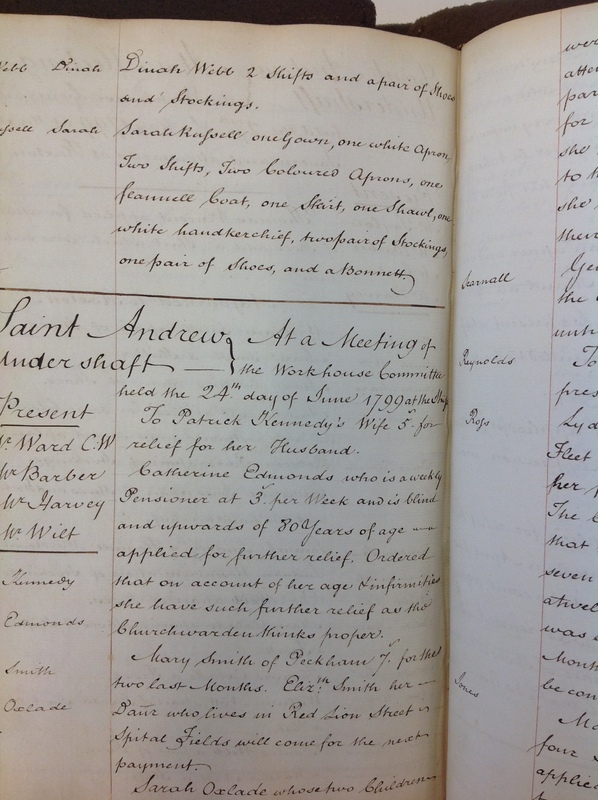 Webb Dinah
Dinah Webb 2 Shifts and a pair of Shoes
and Stockings.
Russell Sarah
Sarah Russell one Gown, one white Apron,
Two Shifts, Two Coloured Aprons, one
Flannell Coat, one Skirt, one Shawl, one
white handkerchief, two pair of Stockings,
one pair of Shoes, and a Bonnett
Saint Andrew
Undershaft
At a Meeting of
the Workhouse Committee
held the 24th day of June 1799 at the Ship
Present
Mr Ward C.W
Mr Barber
Mr Harvey
Mr Wilt
To Patrick Kennedy's Wife 5s. for
relief for her Husband.
Catherine Edmonds who is a weekly
Pensioner at 3s. per Week and is blind
and upwards of 80 Years of age
applied for further relief. Ordered
that on account of her age & infirmities
she have such further relief as the
Churchwarden thinks proper.
Mary Smith of Peckham 7s. for the
two last Months. Elizth Smith her
Daur who lives in Red Lion Street
Spital Fields will come for the next
payment.
Sarah Oxlade whose two Children
Kennedy
Edmonds
Smith
Oxlade
Reynolds
Ross
Jones
were
for
she
to
she
their
the
To
Fleet
her
The
that
seven
was
be con
four
applied